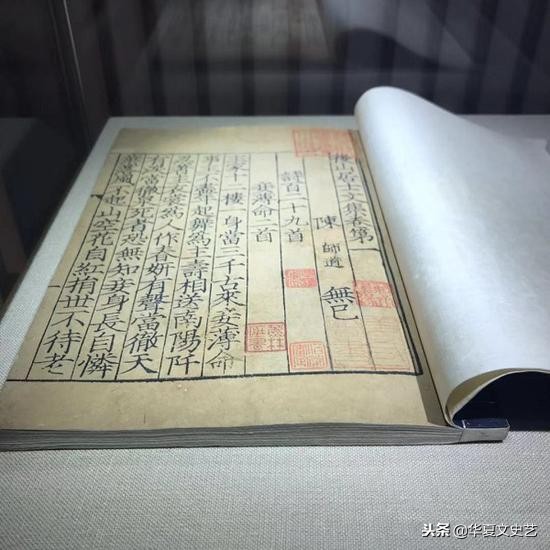 後山居士文集卷第一
陳 師道 無己
詩百二十九首
妾薄命二首
主家十二樓一身當三千古來妾薄命
事主不盡年起舞爲主壽相送南陽阡
忍著主衣裳爲人作春妍有聲當徹天
有淚當徹泉死者恐無知妾身長自憐
葉落風不起山空花自紅捐世不待老
头条 @华夏文史艺